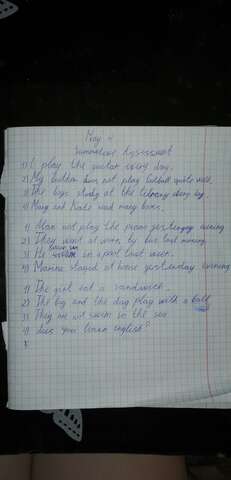 May 4
Summative Assessment
1) I play the guitar every day.
2) My brother does not play football quite well.
3) The boys study at the library every day.
4) Mary and Kate read many books.
1) Alan not play the piano yesterday evening
2) They went at work by bus last morning.
3) He in sport last week.
4) Marina stayed at home yesterday evening
1) The girl eat a sandwich.
2) The boy and the dog play with a ball
3) They are wit swim in the sea
4) does you learn english?